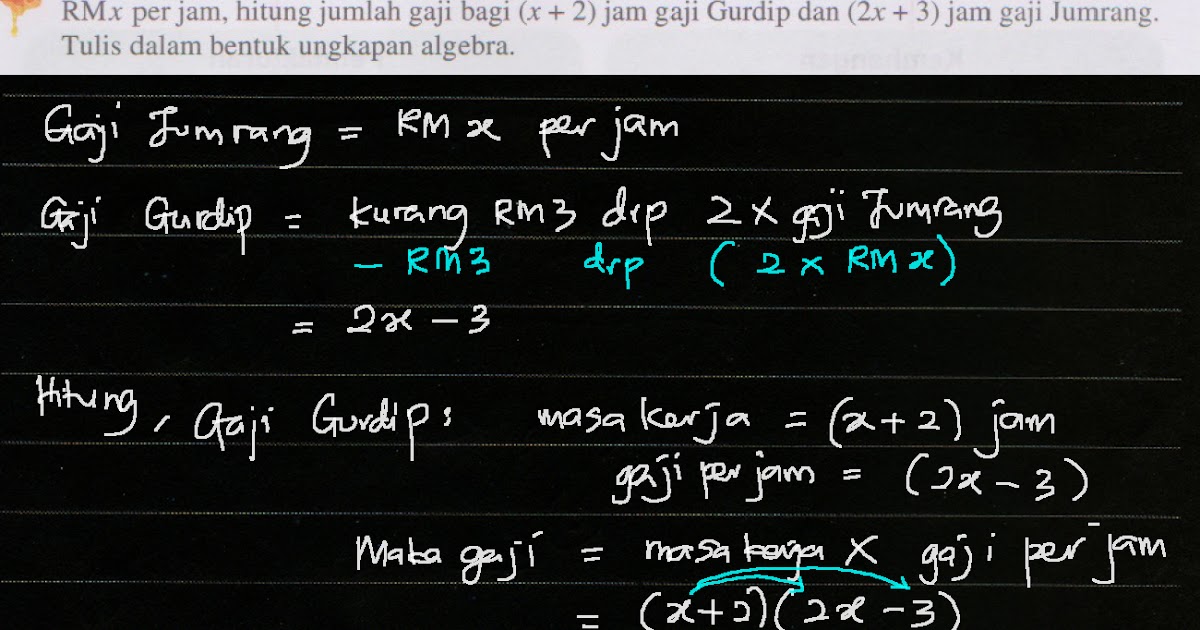 RMx per jam, hitung jumlah gaji bagi (x + 2) jam gaji Gurdip dan (2x + 3) jam gaji Jumrang.
Tulis dalam bentuk ungkapan algebra.
Gaji Jumrang = RM x per jam
Gaji Gurdip = kurang RM3 drp 2 × gaji Jumrang
– RM3 drp ( 2 × RM x )
= 2x – 3
Hitung, Gaji Gurdip : masa kerja = (x + 2) jam
gaji per jam = (2x – 3)
Maka gaji = masa kerja × gaji per jam
= (x+2)(2x – 3)